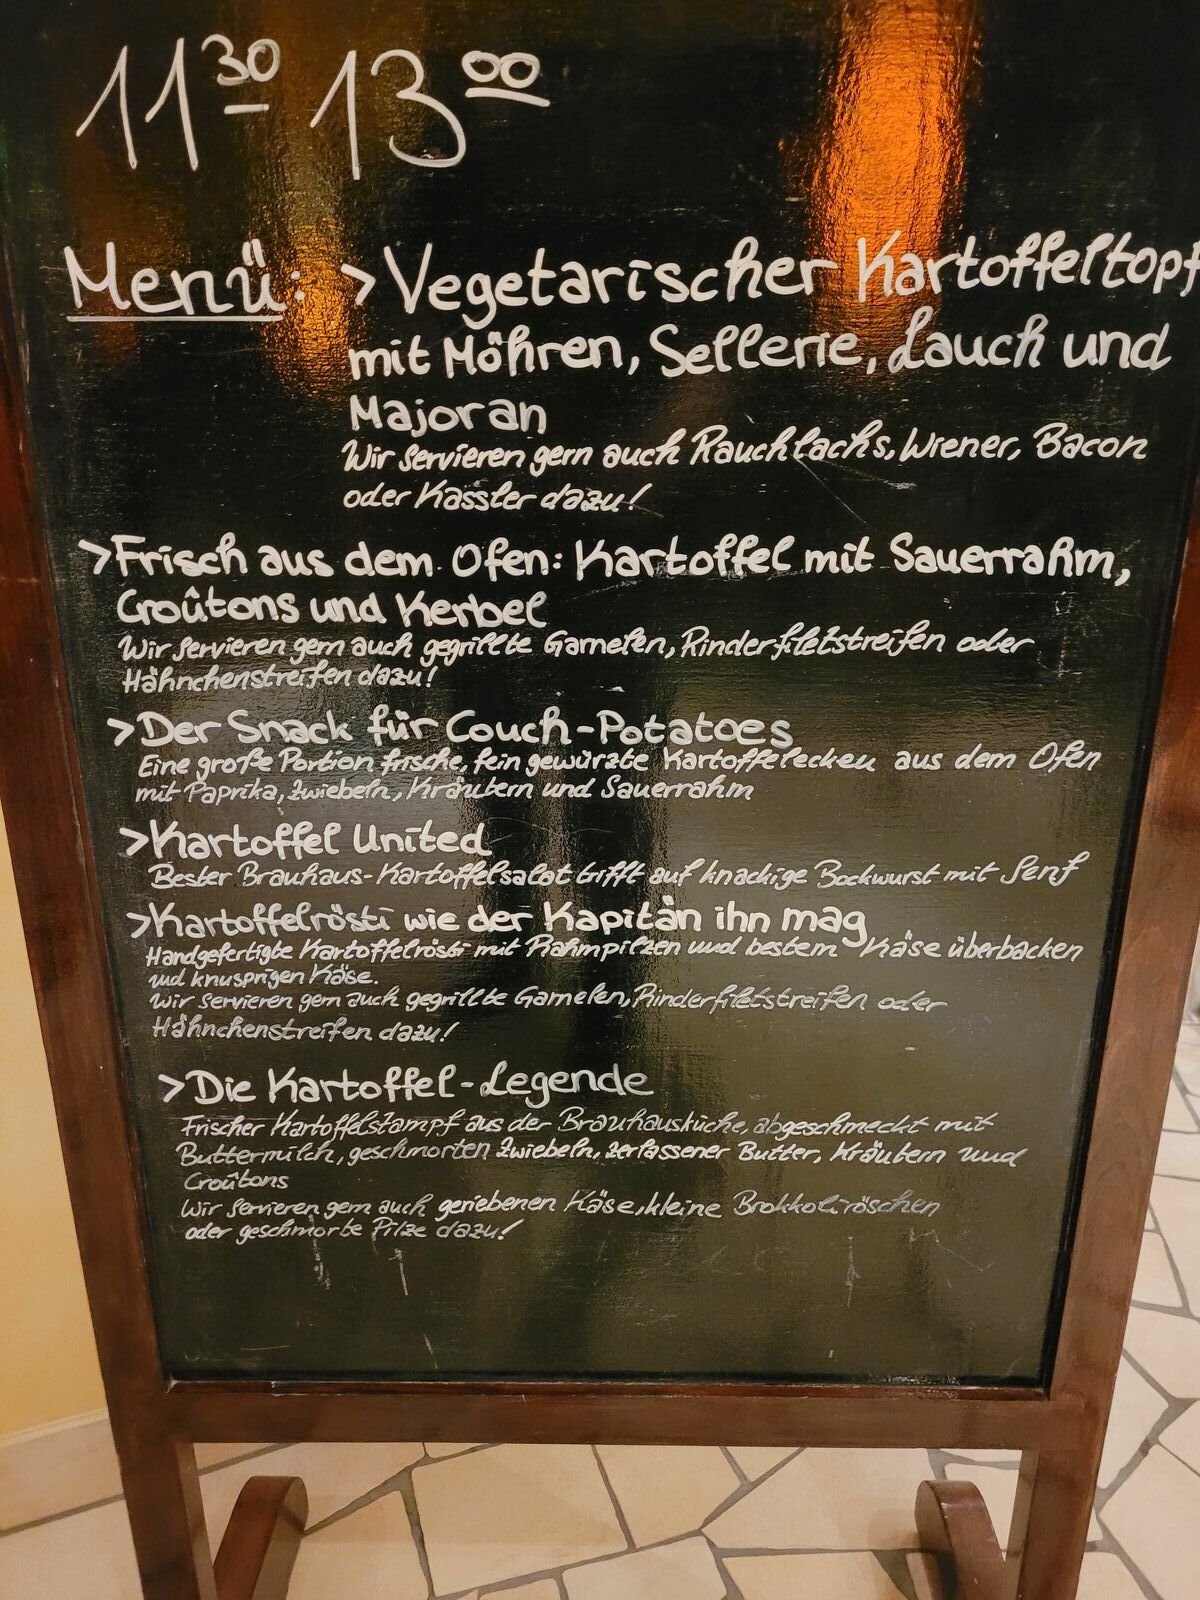 11 30 13 00
Menü: > Vegetarischer Kartoffeltopf
mit Möhren, Sellerie, Lauch und
Majoran
Wir servieren gern auch Rauchlachs, Wiener, Bacon
oder Kassler dazu!
> Frisch aus dem Ofen: Kartoffel mit Sauerrahm,
Croûtons und Kerbel
Wir servieren gern auch gegrillte Garnelen, Rinderfiletstreifen oder
Hähnchenstreifen dazu!
> Der Snack für Couch-Potatoes
Eine große Portion frische, fein gewürzte Kartoffelecken aus dem Ofen
mit Paprika, Zwiebeln, Kräutern und Sauerrahm
> Kartoffel United
Bester Brauhaus-Kartoffelsalat trifft auf knackige Bockwurst mit Senf
> Kartoffelrösti wie der Kapitän ihn mag
Handgefertigte Kartoffelrösti mit Rahmpilzen und bestem Käse überbacken
und knusprigen Käse.
Wir servieren gern auch gegrillte Garnelen, Rinderfiletstreifen oder
Hähnchenstreifen dazu!
> Die Kartoffel-Legende
Frischer Kartoffelstampf aus der Brauhausküche, abgeschmeckt mit
Buttermilch, geschmorten Zwiebeln, zerlassener Butter, Kräutern und
Croûtons
Wir servieren gern auch geriebenen Käse, kleine Brokkoliröschen
oder geschmorte Pilze dazu!